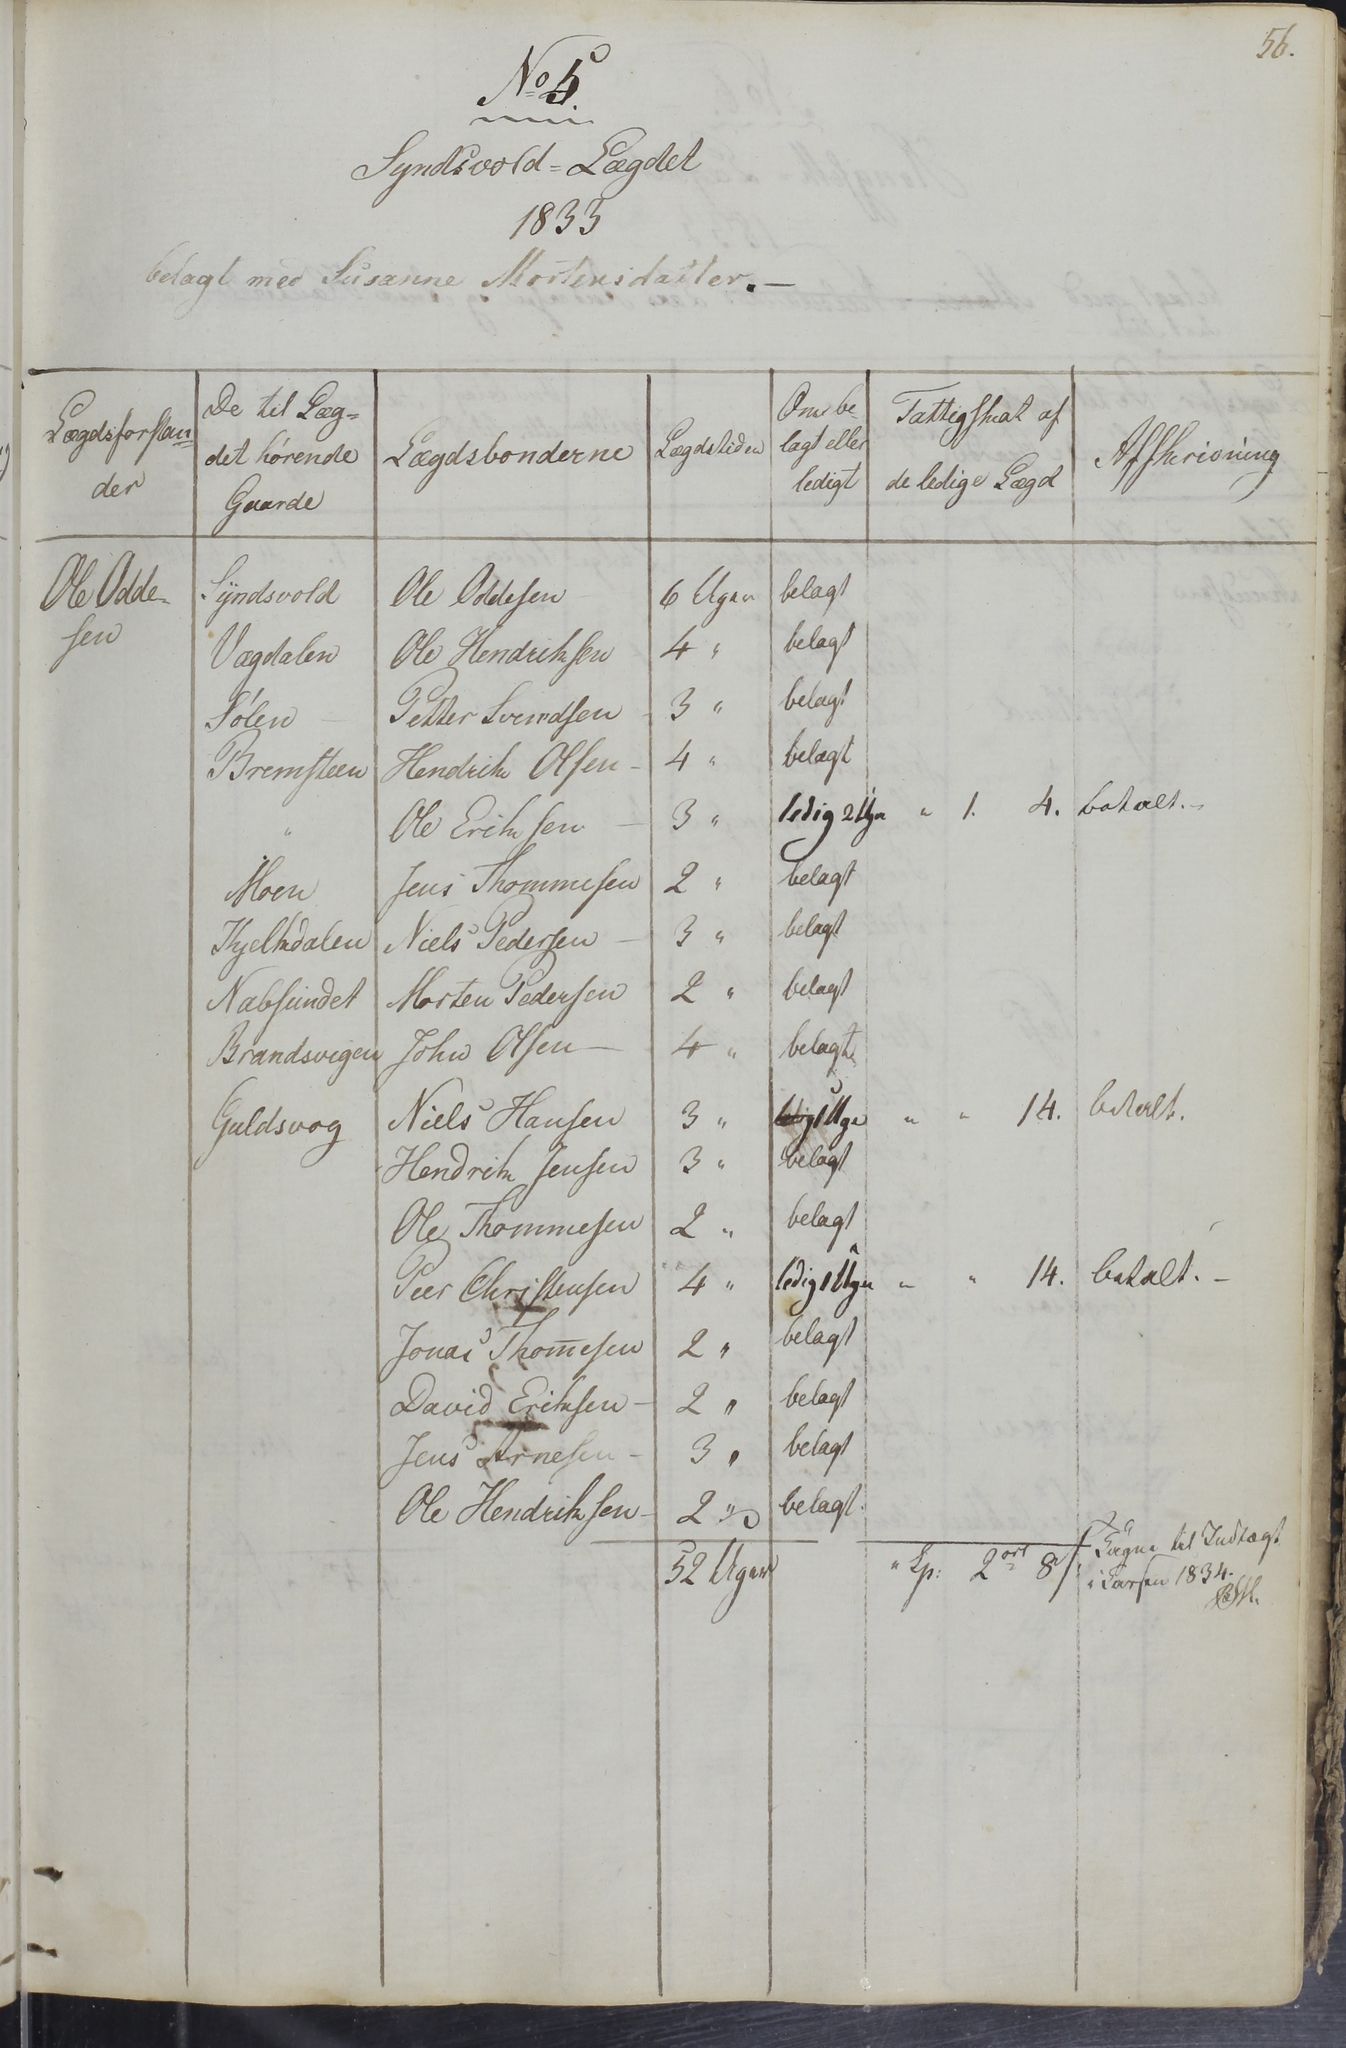 56.
No 5.
Syndsvold=Lægdet
1833
belagt med Susanne Mortensdatter.—
Lægdsforstan
der
De til Læg=
det hørende
Gaarde
Lægdsbonderne
Lægdstiden
Om be-
lagt eller
ledigt
Fattigskat af
de ledige Lægd
Afskrivning
Ole Odde- Syndsvold Ole Oddesen 6 Uger belagt
sen
Vægdalen Ole Hendriksen 4 " belagt
Sølen — Petter Svendsen 3 " belagt
Bremsteen Hendrik Olsen - 4 " belagt
" Ole Eriksen — 3 " ledig 2 Uger " 1. 4. betalt.-
Moen Jens Thommesen 2 " belagt
Kjelkdalen Niels Pedersen — 3 " belagt
Nabsundet Morten Pedersen 2 " belagt
Brandsvigen John Olsen — 4 " belagt
Guldsvog Niels Hansen 3 " ledig 1 Uge " " 14. betalt.
Hendrik Jensen 3 " belagt
Ole Thommesen 2 " belagt
Peer Christensen 4 " ledig 1 Uge " " 14. betalt. -
Jonas Thom̅esen 2 " belagt
David Eriksen - 2 " belagt
Jens Arnesen - 3 " belagt
Ole Hendriksen - 2 " belagt.
52 Uger " Sp: 2 ort 8
til Indtægt
i 1834.